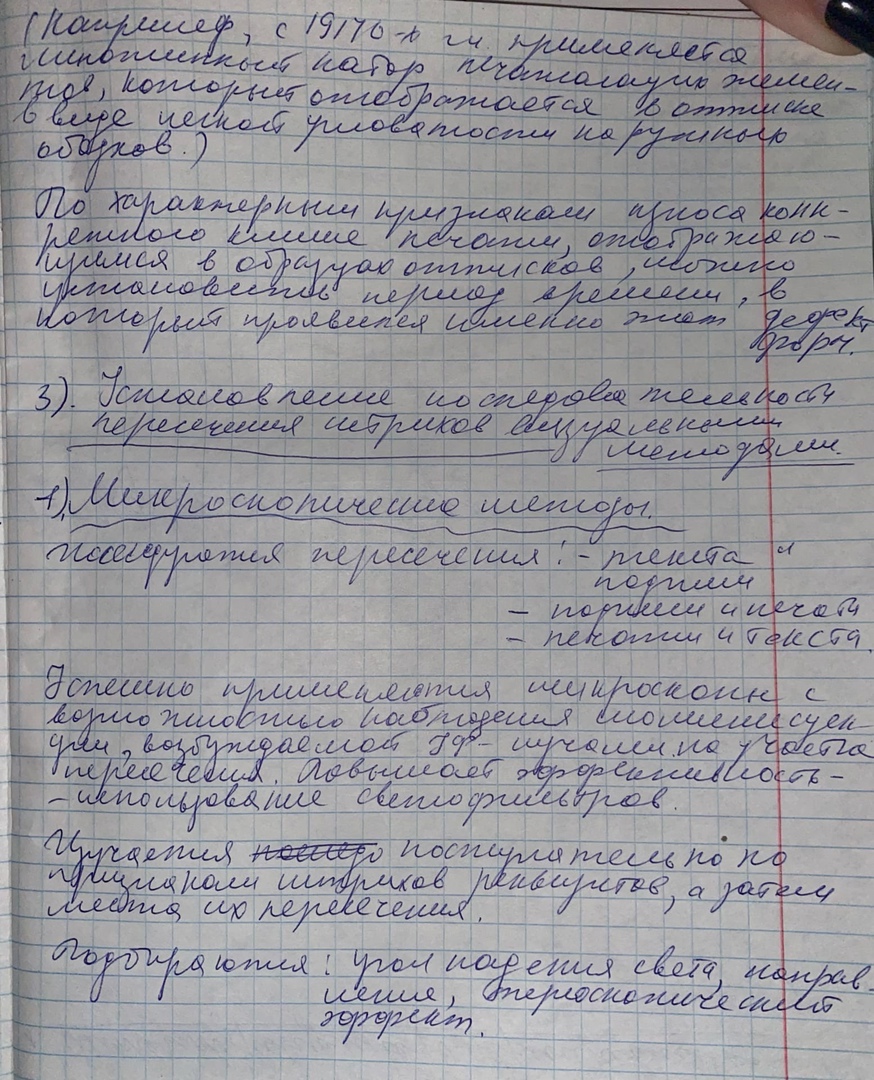 (Например, с 19176-х гг. применяется
набор печатающих элемен-
тов, который отображается в оттиске
в виде четкой угловатости наружных
ободков.)
По характерным признакам износа конк-
ретного клише печати, отображаю-
щимся в образцах оттисков, можно
установить период времени, в
который проявился именно этот дефект
форм.
3). Установление последовательности
пересечения штрихов визуальными
методами.
1). Микроскопические методы.
пересечения: - текста и
подписи
- подписи и печати
- печати и текста.
Успешно применяются микроскопы с
возможностью наблюдения люминесцен-
ции, возбуждаемой УФ-лучами на участке
пересечения. Повышает эффективность -
- использование светофильтров.
Изучается поступательно по
признакам штрихов реквизитов, а затем
места их пересечения.
Подбираются: угол падения света, направ-
ление, стереоскопический
эффект.